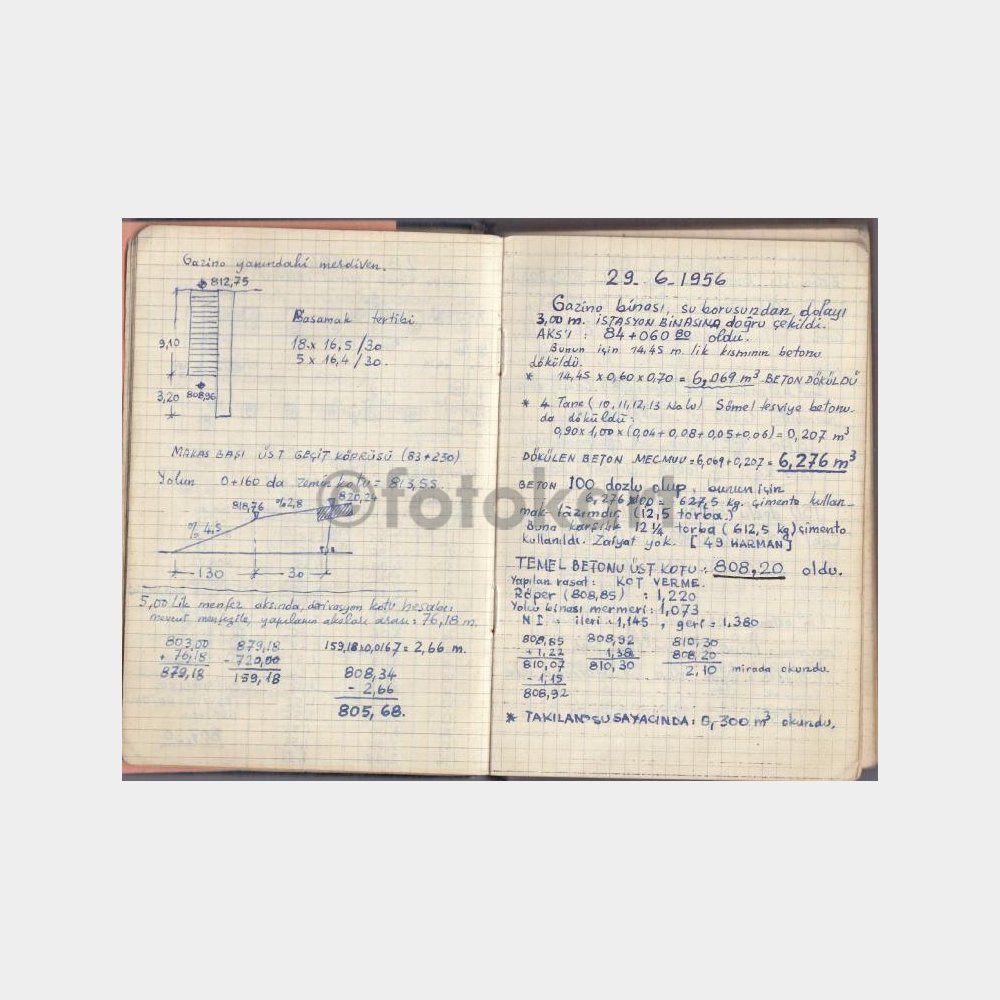 Gazino yanındaki merdiven.
812,75
9,10
3,20
808,96
Basamak tertibi
18 x 16,5 / 30
5 x 16,4 / 30.
MAKAS BAŞI ÜST GEÇİT KÖPRÜSÜ (83+230)
Yolun 0+160 da zemin kotu = 813,55
818,76
% 2,8
820,24
% 4,5
130
30
5,00 lik menfez aksında, derivasyon kotu hesabı:
mevcut menfezle, yapılanın aksları arası: 76,18 m.
803,00
+ 76,18
879,18
879,18
- 720,00
159,18
159,18x0,0167 = 2,66 m.
808,34
- 2,66
805,68.
29_6_1956
Gazino binası, su borusundan dolayı
3,00 m. İSTASYON BİNASINA doğru çekildi.
AKS'I : 84+060 80 oldu.
Bunun için 14.45 m. lik kısmının betonu
döküldü.
* 14,45 x 0,60 x 0,70 = 6,069 m³ BETON DÖKÜLDÜ
* 4 Tane (10,11,12,13 Nolu) Sömel tesviye betonu
da döküldü:
0,90 x 1,00 x (0,04+0,08+0,05+0,06) = 0,207 m³
DÖKÜLEN BETON MECMUU = 6,069+0,207 = 6,276 m³
BETON 100 dozlu olup, bunun için
6,276x100 = 627,5 kg. çimento kullan-
mak lâzımdır (12,5 torba.)
Buna karşılık 12 1/4 torba (612,5 kg) çimento
kullanıldı. Zaiyat yok. [49 HARMAN]
TEMEL BETONU ÜST KOTU : 808,20 oldu.
Yapılan rasat: KOT VERME.
Röper (808,85) : 1,220
Yolcu binası mermeri : 1,073
N I. : ileri : 1,145 , geri = 1,380
808,85
+ 1,22
810,07
- 1,15
808,92
808,92
1,38
810,30
810,30
808,20
2,10 mirada okundu.
* TAKILAN SU SAYACINDA : 0,300 m³ okundu.
©fotokart